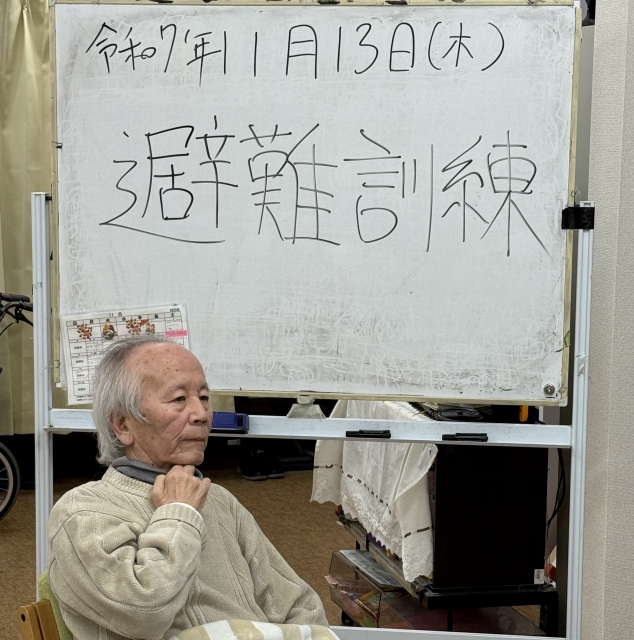 令和7年11月13日(木)
避難訓練